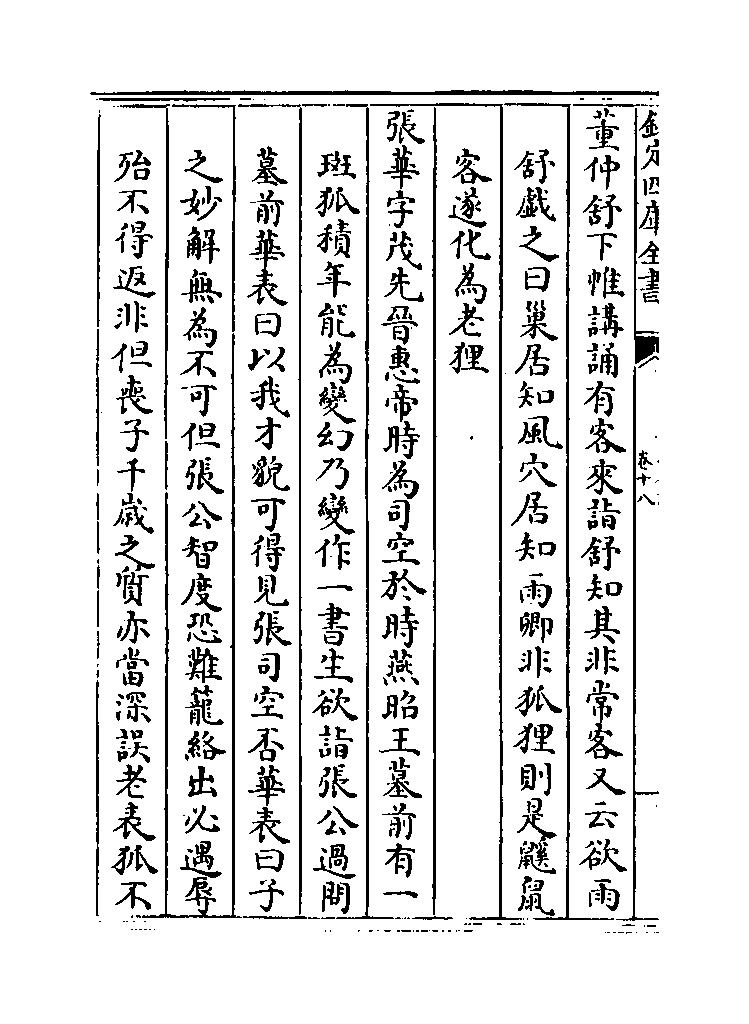 欽定四庫全書
卷十八
董仲舒下帷講誦有客來詣舒知其非常客又云欲雨
舒戲之曰巢居知風穴居知雨卿非狐狸則是鼷鼠
客遂化為老狸
張華字茂先晉惠帝時為司空於時燕昭王墓前有一
斑狐積年能為變幻乃變作一書生欲詣張公過問
墓前華表曰以我才貌可得見張司空否華表曰子
之妙解無為不可但張公智度恐難籠絡出必遇辱
殆不得返非但喪子千歲之質亦當深誤老表狐不